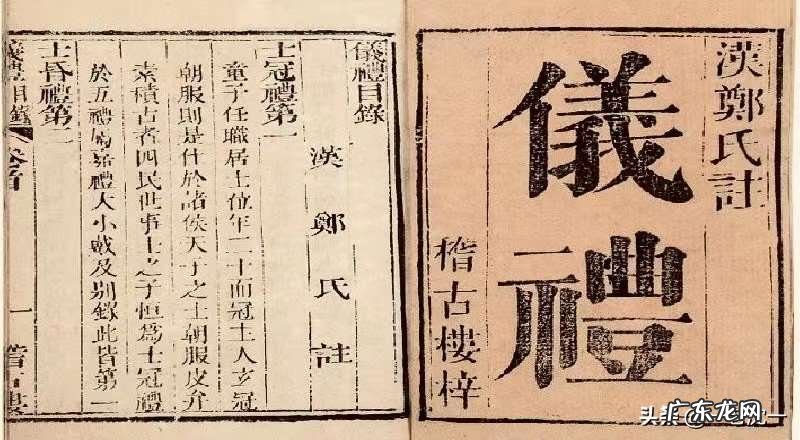 漢鄭氏註
儀禮
稽古樓梓
儀禮目錄
漢鄭氏註
士冠禮第一
童子任職居士位年二十而冠士人玄冠
朝服則是仕於諸侯天子之士朝服皮弁
素積古者四民世事士之子恒爲士冠禮
於五禮屬嘉禮大小戴及別錄此皆第一
士昏禮第二
儀禮目錄 卷首 一
广东龙网